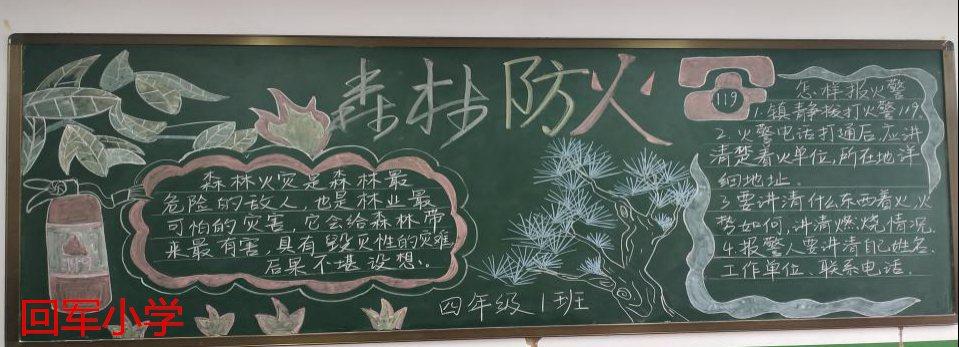 森林防火
119
森林火灾是森林最
危险的敌人,也是林业最
可怕的灾害,它会给森林带
来最有害,具有毁灭性的灾难
后果不堪设想。
怎样报火警
1.镇静拨打火警119.
2.火警电话打通后应讲
清楚着火单位,所在地详
细地址.
3.要讲清什么东西着火,火
势如何,讲清燃烧情况
4.报警人要讲清自己姓名.
工作单位、联系电话.
四年级1班
回军小学